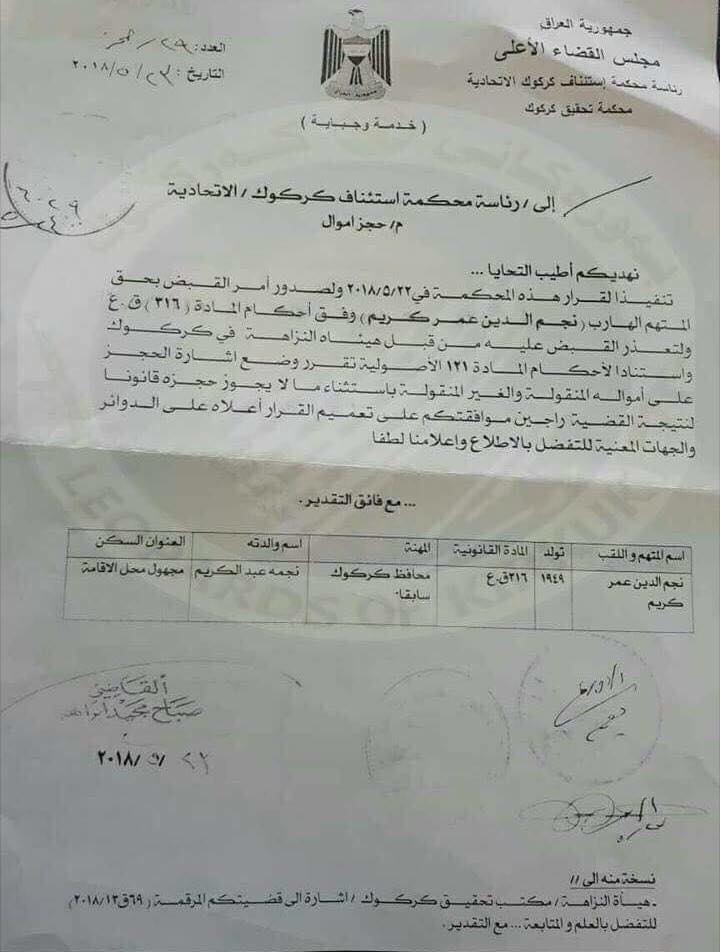 جمهورية العراق
مجلس القضاء الأعلى
رئاسة محكمة إستئناف كركوك الاتحادية
محكمة تحقيق كركوك
العدد: ٢٩/ حجز
التاريخ: ٢٣/٥/٢٠١٨
( خدمة وجباية )
إلى / رئاسة محكمة استئناف كركوك / الاتحادية
م/ حجز اموال
نهديكم أطيب التحايا ...
تنفيذا لقرار هذه المحكمة في ٢٠١٨/٥/٢٢ ولصدور أمر القبض بحق
المتهم الهارب (نجم الدين عمر كريم) وفق أحكام المادة (٣١٦) ق.ع
ولتعذر القبض عليه من قبل هيئاه النزاهة في كركوك
واستنادا لأحكام المادة ١٢١ الأصولية تقرر وضع اشارة الحجز
على أمواله المنقولة والغير المنقولة باستثناء ما لا يجوز حجزه قانونا
لنتيجة القضية راجين موافقتكم على تعميم القرار أعلاه على الدوائر
والجهات المعنية للتفضل بالاطلاع واعلامنا لطفا
... مع فائق التقدير.
اسم المتهم و اللقب تولد المادة القانونية المهنة اسم والدته العنوان السكن
نجم الدين عمر كريم ١٩٤٩ ٣١٦ق.ع محافظ كركوك سابقا٠ نجمه عبد الكريم مجهول محل الاقامة
القاضي
صباح محمد
٢٠١٨/٥/٢٢
نسخة منه الى //
ـ هيأة النزاهة / مكتب تحقيق كركوك / اشارة الى قضيتكم المرقمة (٦٩ق/٢٠١٨/١٣)
للتفضل بالعلم و المتابعة ... مع التقدير.